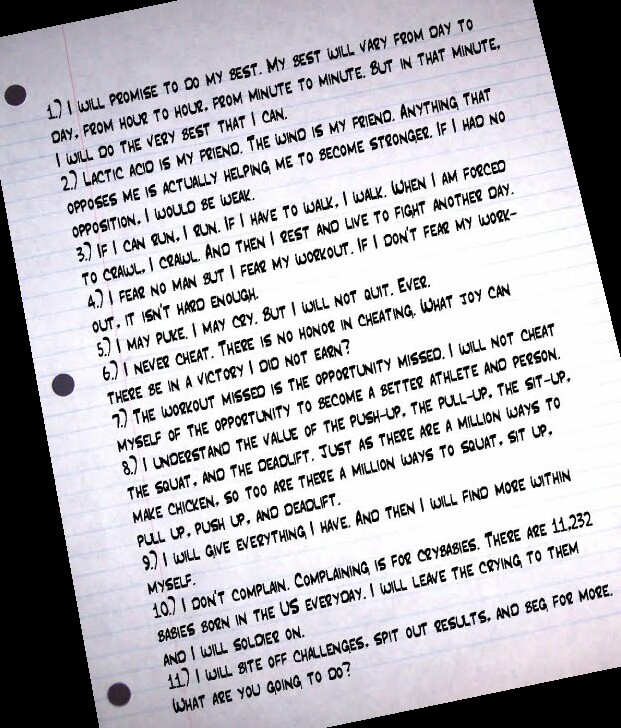 1.) I WILL PROMISE TO DO MY BEST. MY BEST WILL VARY FROM DAY TO
DAY, FROM HOUR TO HOUR, FROM MINUTE TO MINUTE. BUT IN THAT MINUTE,
I WILL DO THE VERY BEST THAT I CAN.
2.) LACTIC ACID IS MY FRIEND. THE WIND IS MY FRIEND. ANYTHING THAT
OPPOSES ME IS ACTUALLY HELPING ME TO BECOME STRONGER. IF I HAD NO
OPPOSITION, I WOULD BE WEAK.
3.) IF I CAN RUN, I RUN. IF I HAVE TO WALK, I WALK. WHEN I AM FORCED
TO CRAWL, I CRAWL. AND THEN I REST AND LIVE TO FIGHT ANOTHER DAY.
4.) I FEAR NO MAN BUT I FEAR MY WORKOUT. IF I DON'T FEAR MY WORK-
OUT, IT ISN'T HARD ENOUGH.
5.) I MAY PUKE. I MAY CRY. BUT I WILL NOT QUIT. EVER.
6.) I NEVER CHEAT. THERE IS NO HONOR IN CHEATING. WHAT JOY CAN
THERE BE IN A VICTORY I DID NOT EARN?
7.) THE WORKOUT MISSED IS THE OPPORTUNITY MISSED. I WILL NOT CHEAT
MYSELF OF THE OPPORTUNITY TO BECOME A BETTER ATHLETE AND PERSON.
8.) I UNDERSTAND THE VALUE OF THE PUSH-UP, THE PULL-UP, THE SIT-UP,
THE SQUAT, AND THE DEADLIFT. JUST AS THERE ARE A MILLION WAYS TO
MAKE CHICKEN, SO TOO ARE THERE A MILLION WAYS TO SQUAT, SIT UP,
PULL UP, PUSH UP, AND DEADLIFT.
9.) I WILL GIVE EVERYTHING I HAVE. AND THEN I WILL FIND MORE WITHIN
MYSELF.
10.) I DON'T COMPLAIN. COMPLAINING IS FOR CRYBABIES. THERE ARE 11,232
BABIES BORN IN THE US EVERYDAY. I WILL LEAVE THE CRYING TO THEM
AND I WILL SOLDIER ON.
11.) I WILL BITE OFF CHALLENGES, SPIT OUT RESULTS, AND BEG FOR MORE.
WHAT ARE YOU GOING TO DO?